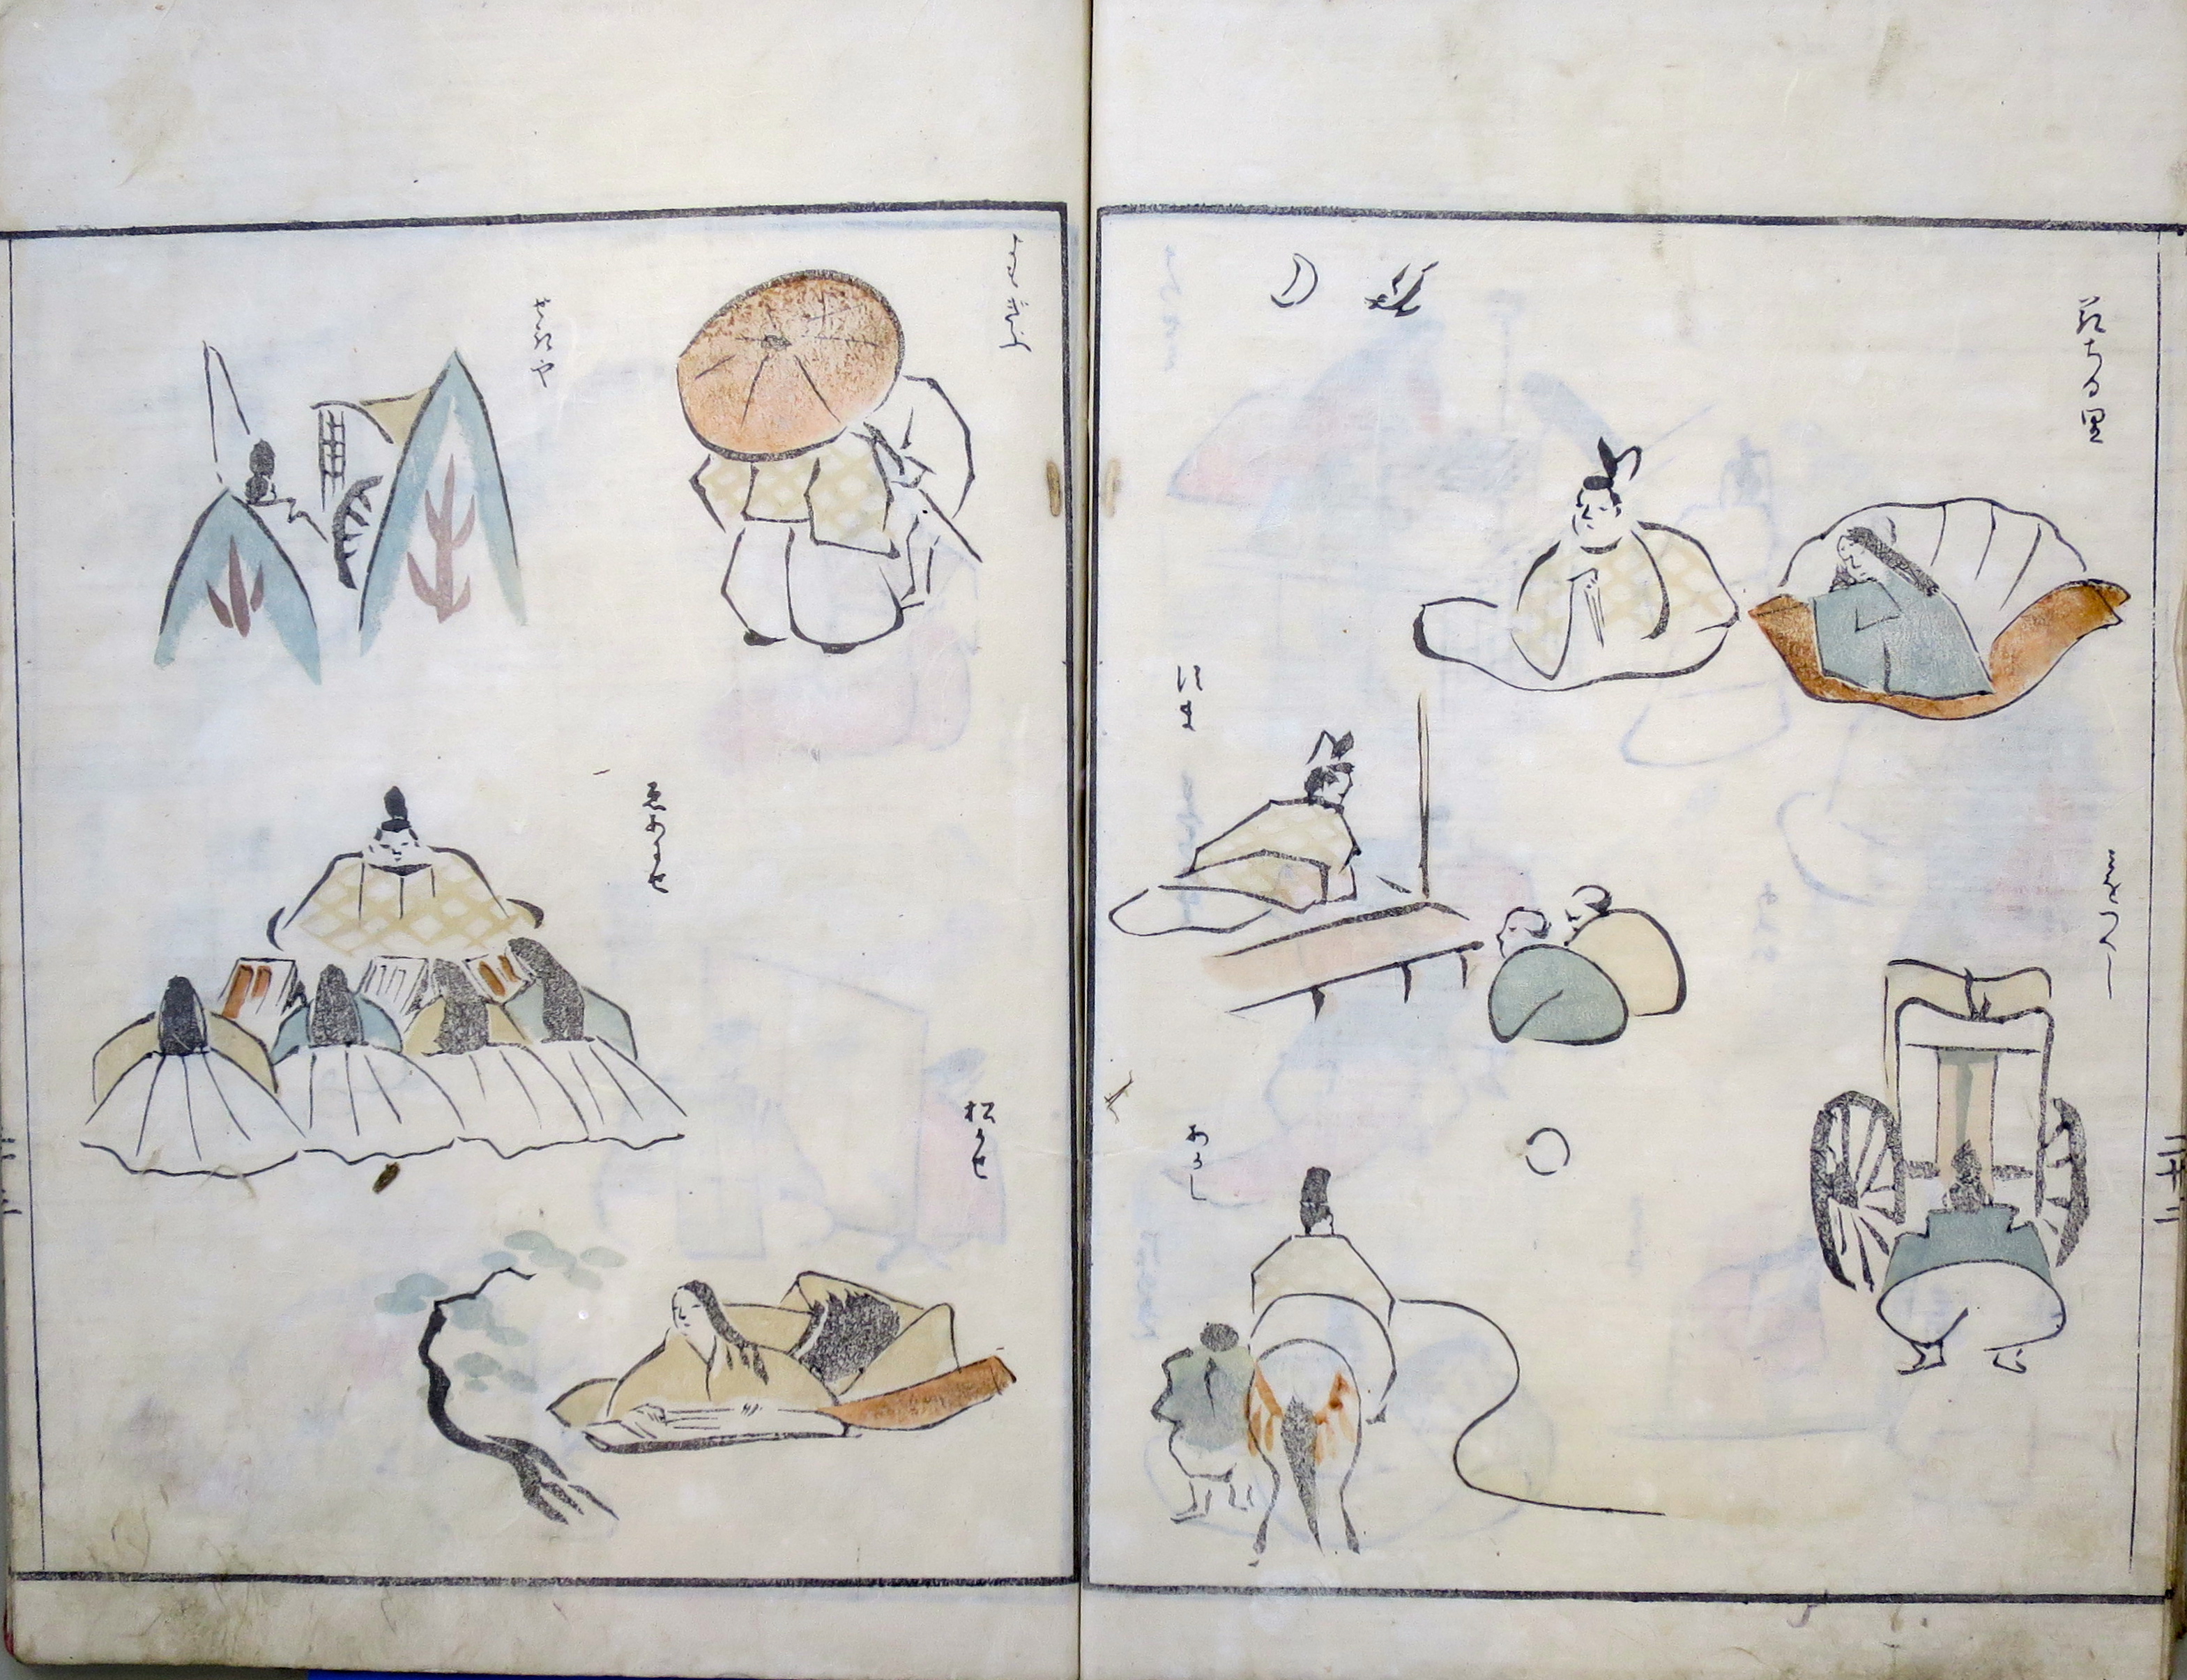 花ちる里
みをつくし
すま
あかし
よもきふ
せきや
ゑあはせ
松かせ